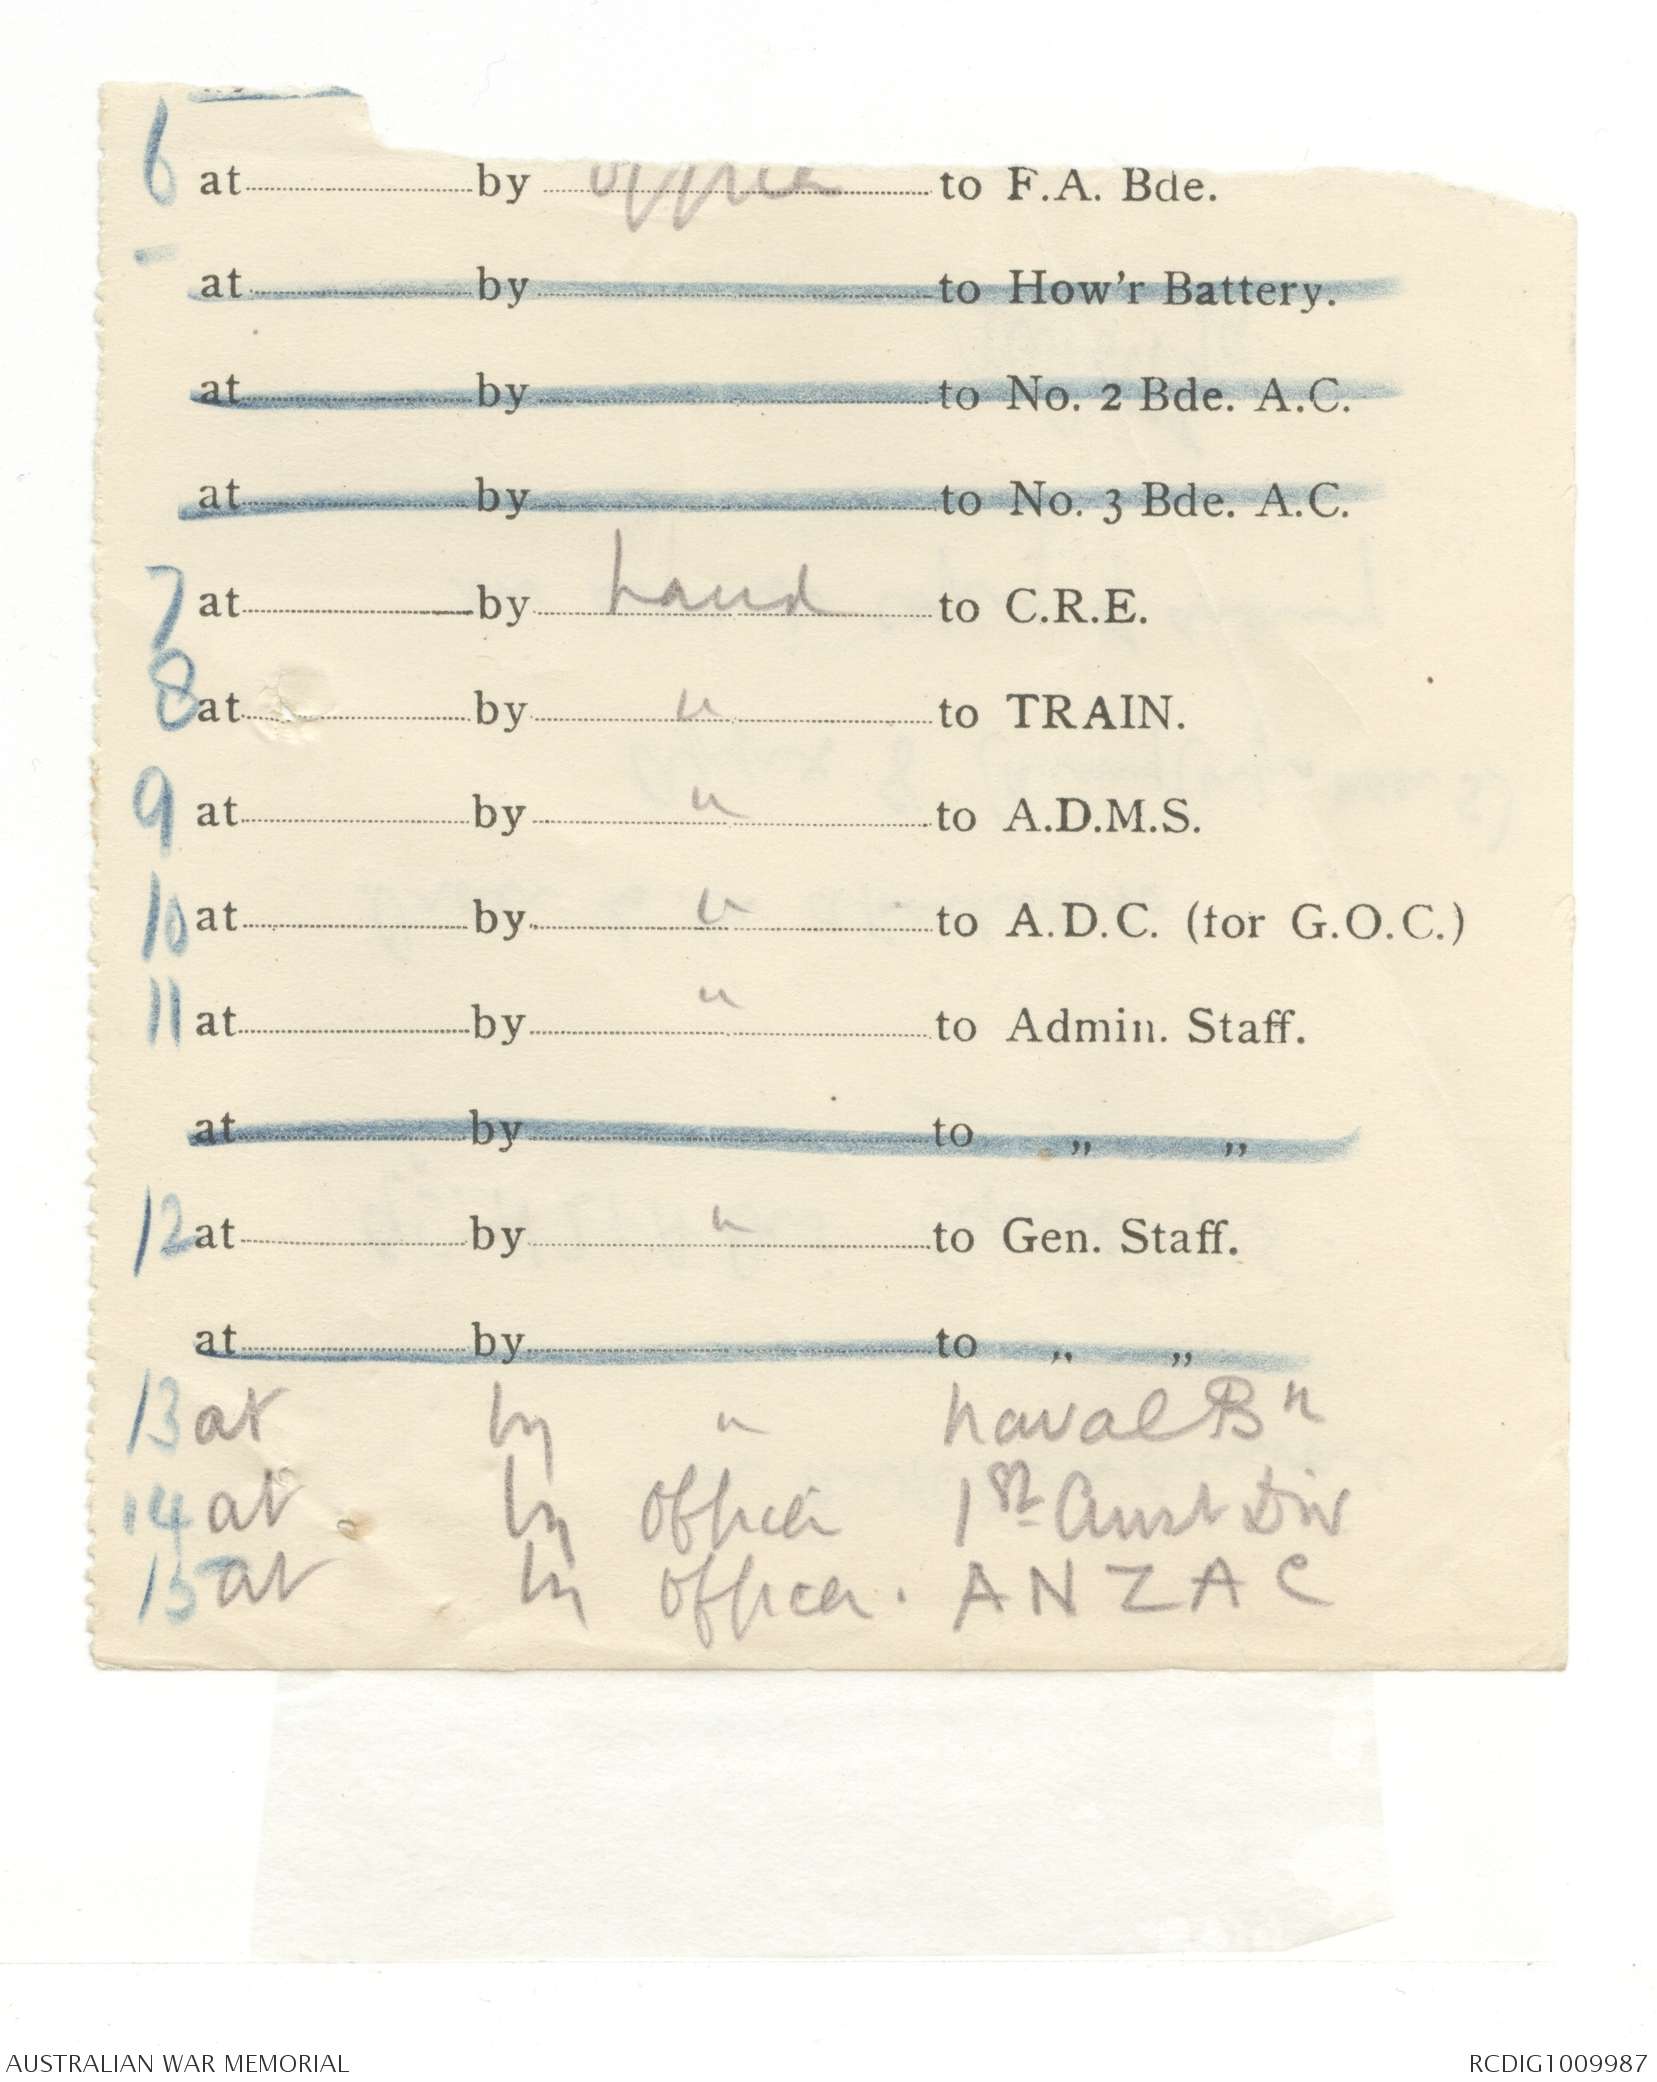 6 at by officer to F.A. Bde.
at by to How'r Battery.
at by to No. 2 Bde. A.C.
at by to No. 3 Bde. A.C.
7 at by hand to C.R.E.
8 at by " to TRAIN.
9 at by " to A.D.M.S.
10 at by " to A.D.C. (for G.O.C.)
11 at by " to Admin. Staff.
at by to " "
12 at by " to Gen. Staff.
at by to " "
13 at by " Naval Bn
14 at by officer 1st Aust Div
15 at by officer. ANZAC
AUSTRALIAN WAR MEMORIAL RCDIG1009987